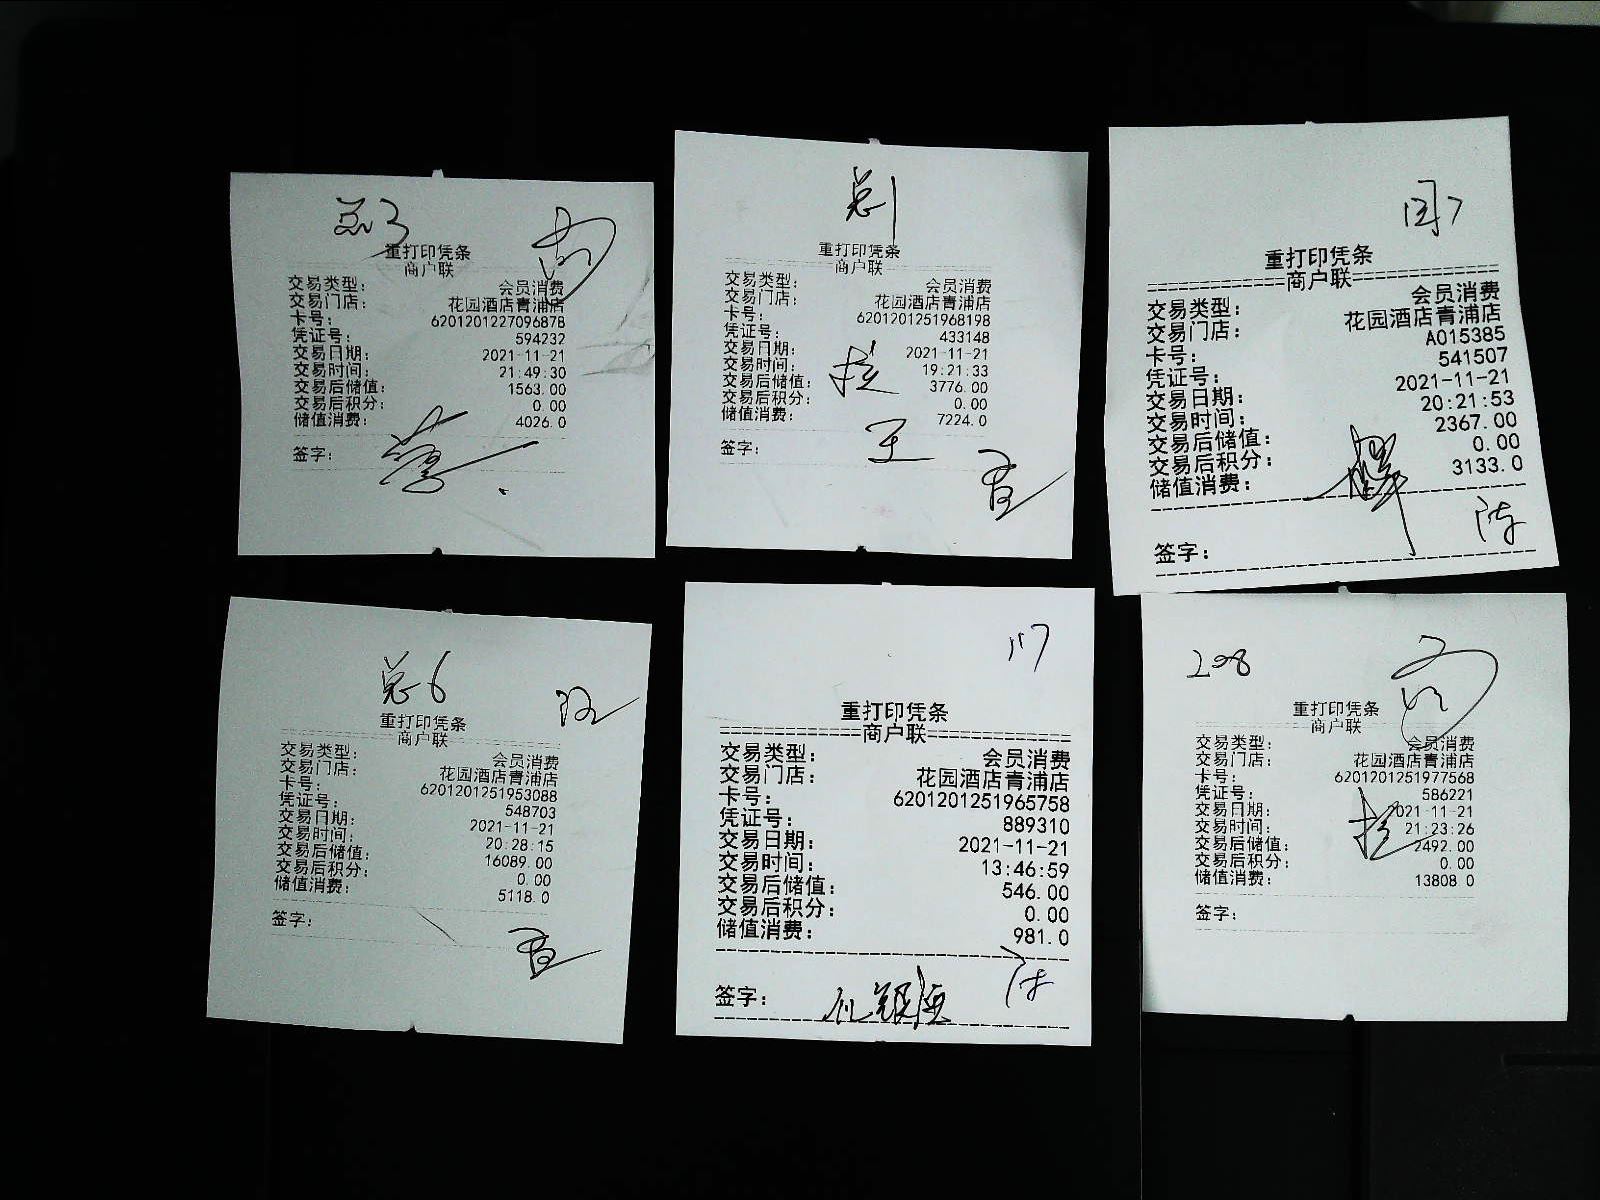 总3
重打印凭条
商户联
交易类型： 会员消费
交易门店： 花园酒店青浦店
卡号： 6201201227096878
凭证号： 594232
交易日期： 2021-11-21
交易时间： 21:49:30
交易后储值： 1563.00
交易后积分： 0.00
储值消费： 4026.0
签字：
总1
重打印凭条
商户联
交易类型： 会员消费
交易门店： 花园酒店青浦店
卡号： 6201201251968198
凭证号： 433148
交易日期： 2021-11-21
交易时间： 19:21:33
交易后储值： 3776.00
交易后积分： 0.00
储值消费： 7224.0
王
签字：
重打印凭条
==========商户联==========
交易类型： 会员消费
交易门店： 花园酒店青浦店
卡号： A015385
凭证号： 541507
交易日期： 2021-11-21
交易时间： 20:21:53
交易后储值： 2367.00
交易后积分： 0.00
储值消费： 3133.0
陈
签字：
总6
重打印凭条
商户联
交易类型： 会员消费
交易门店： 花园酒店青浦店
卡号： 6201201251953088
凭证号： 548703
交易日期： 2021-11-21
交易时间： 20:28:15
交易后储值： 16089.00
交易后积分： 0.00
储值消费： 5118.0
签字：
117
重打印凭条
==========商户联==========
交易类型： 会员消费
交易门店： 花园酒店青浦店
卡号： 6201201251965758
凭证号： 889310
交易日期： 2021-11-21
交易时间： 13:46:59
交易后储值： 546.00
交易后积分： 0.00
储值消费： 981.0
签字：
208
重打印凭条
商户联
交易类型： 会员消费
交易门店： 花园酒店青浦店
卡号： 6201201251977568
凭证号： 586221
交易日期： 2021-11-21
交易时间： 21:23:26
交易后储值： 2492.00
交易后积分： 0.00
储值消费： 13808.0
签字：